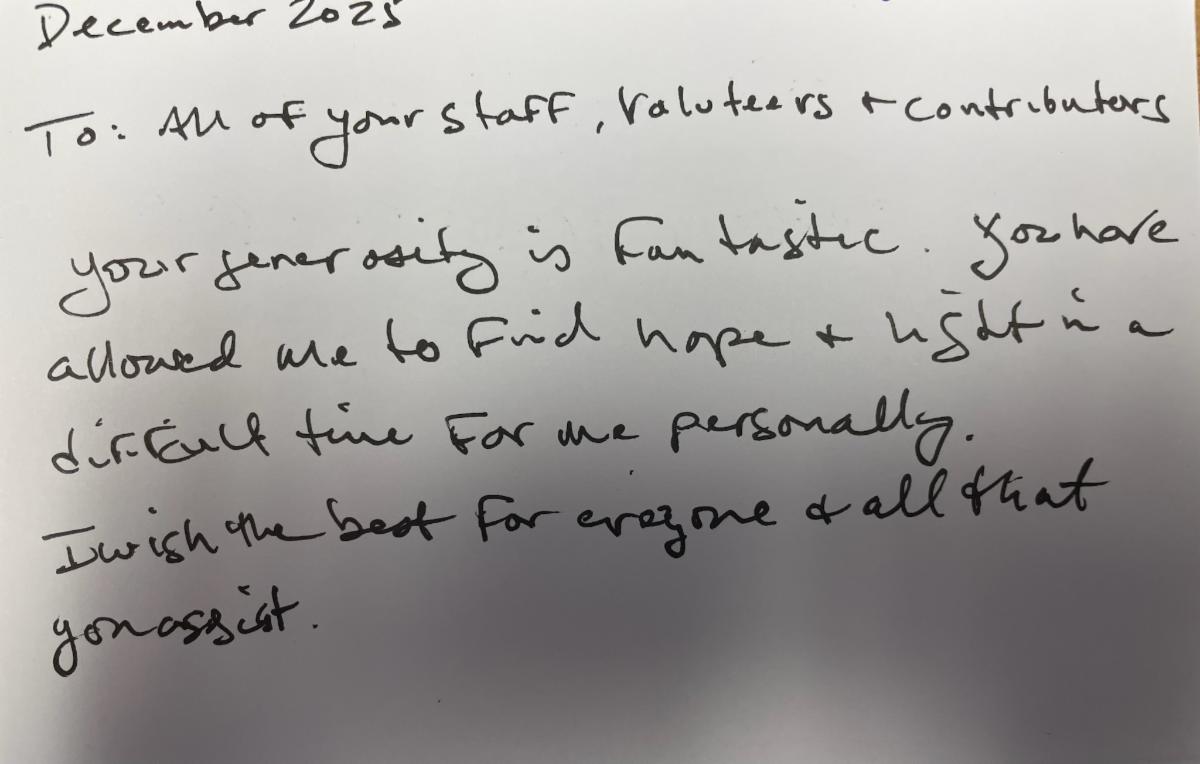 December 2025
To: All of your staff, Voluteers + contributors
your generosity is Fantastic. You have
allowed me to Find hope + light in a
difficult time For me personally.
I wish the best For everyone & all that
you assist.